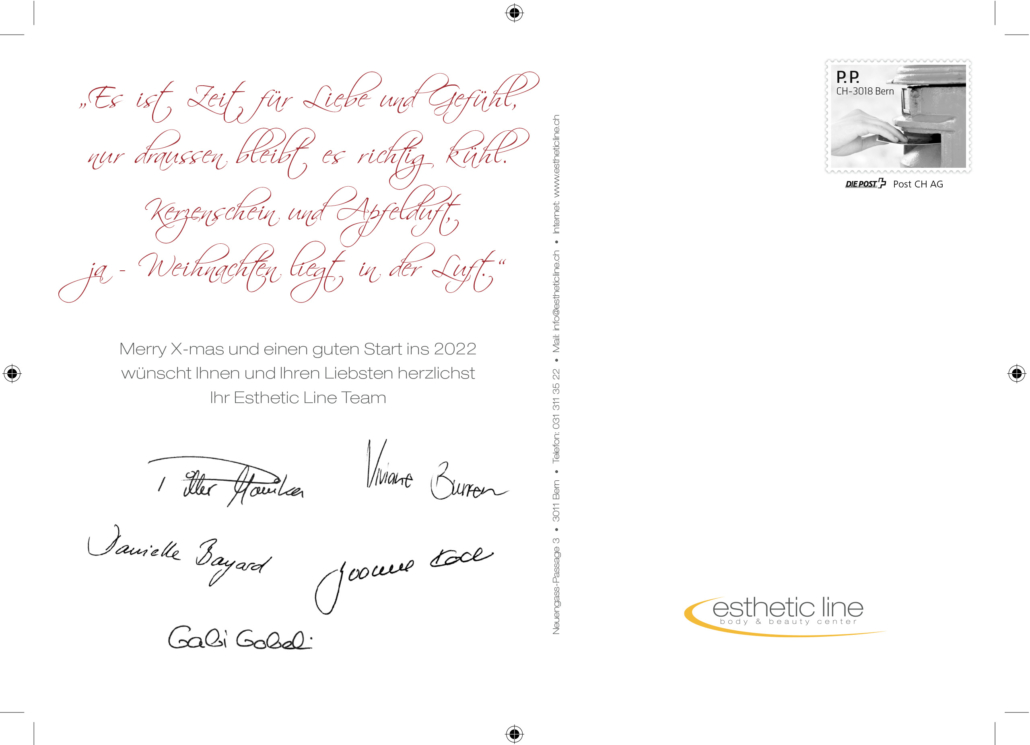 „Es ist Zeit für Liebe und Gefühl,
nur draussen bleibt es richtig kühl.
Kerzenschein und Apfelduft,
ja - Weihnachten liegt in der Luft.“
Merry X-mas und einen guten Start ins 2022
wünscht Ihnen und Ihren Liebsten herzlichst
Ihr Esthetic Line Team
Viviane Burren
Danielle Bayard
Gabi Gobeli
Neuengass-Passage 3 • 3011 Bern • Telefon: 031 311 35 22 • Mail: info@estheticline.ch • Internet: www.estheticline.ch
P.P.
CH-3018 Bern
DIE POST Post CH AG
esthetic line
body & beauty center